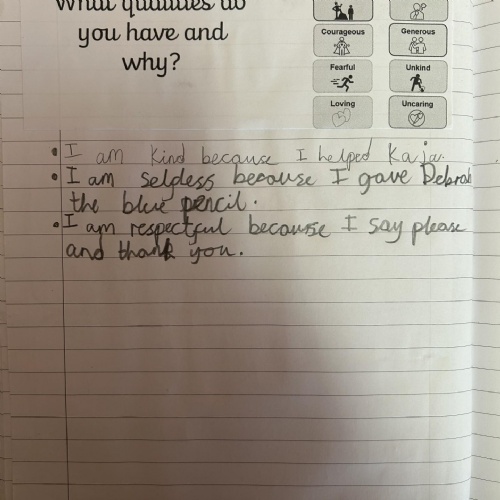 What qualities do
you have and
why?
Courageous
Generous
Fearful
Unkind
Loving
Uncaring
• I am kind because I helped Kaja.
• I am seldless becouse I gave Debrah
the blue pencil.
• I am respectful becourse I say please
and thank you.